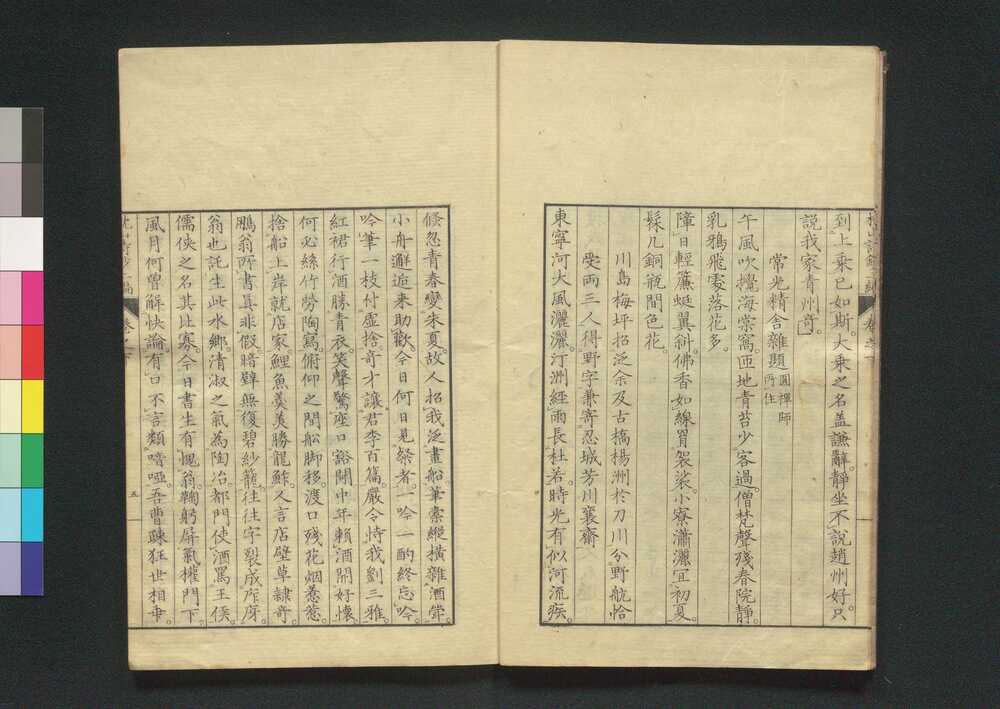 到上乗已如斯大乗之名盖謙辭静坐不説趙州好只
説我家青州竒
常光精舎雜題圓禪師所住
午風吹攪海棠窩匝地青苔少客過僧梵聲残春院靜
乳鴉飛處落花多
障日輕簾蜓翼斜佛香如線罥袈裟小寮瀟灑冝初夏
髹几銅瓶間色花
川島梅坪招泛余及古橋楊洲於刀川分野航恰
受兩三人得野字兼寄忍城芳川襄齋
東寧河大風灑灑汀洲經雨長杜若時光有似河流疾
倐忽青春變朱夏故人招我泛畫船筆槖縱横雜酒斝
小舟邂逅来助歡今日何日見粲者一吟一酌終忘吟
吟筆一枝付虚捨竒才讓君李百篇嚴令恃我劉三雅
紅裙行酒勝青衣笑聲驚座口豁閜中年賴酒開好懷
何必絲竹勞陶寫俯仰之間舩脚移渡口残花烟惹惹
捨船上岸就店家鯉魚羹美勝龍鮓人言店壁草隷竒
鵬翁所書真非假暗壁無復碧紗籠往往字裂成厏厊
翁也託生此水郷清淑之氣為陶冶都門使酒罵王侯
儒侠之名其比寡今日書生有愧翁鞠躬屏氣權門下
風月何曽解快論有口不言類喑啞吾曹疎狂世相乖
五